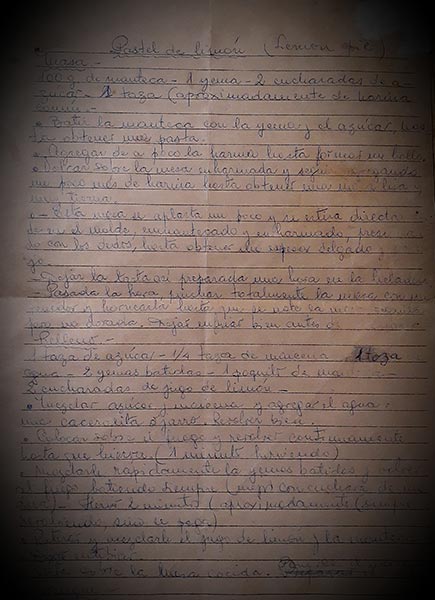 Pastel de limón (Lemon pie)
Masa -
100 g. de manteca - 1 yema - 2 cucharadas de a-
zúcar - 1 taza (aproximadamente de harina
común -
• Batir la manteca con la yema y el azúcar, has-
ta obtener una pasta.
• Agregar de a poco la harina hasta formar un bollo.
• Volcar sobre la mesa enharinada y seguir
un poco más de harina hasta obtener una masa lisa y
muy tierna.
• Esta masa se aplasta un poco y se estira directa
te en el molde, enmantecado y enharinado, 
do con los dedos, hasta obtener un espesor delgado y
go.
- Dejar la tarta así preparada una hora en la heladera
- Pasada la hora pinchar totalmente la masa con un
tenedor y hornearla hasta que se note la masa
pero no dorada. Dejar enfriar bien antes de
Relleno. -
1 taza de azúcar - 1/4 taza de maicena 1 taza
agua - 2 yemas batidas - 1 poquito de
2 cucharadas de jugo de limón -
• Mezclar azúcar y maicena y agregar el agua
una cacerolita o jarro. Revolver bien.
• Colocar sobre el fuego y revolver continuamente
hasta que hierva. (1 minuto hirviendo)
• Mezclarle rápidamente las yemas batidas y volver
al fuego batiendo siempre (mejor con cuchara de
) - Hervir 2 minutos (aproximadamente) (siempre
revolviendo, sino se pega)
• Retirar y mezclarle el jugo de limón y la manteca
Dejar enfriar.
sobre la masa cocida.